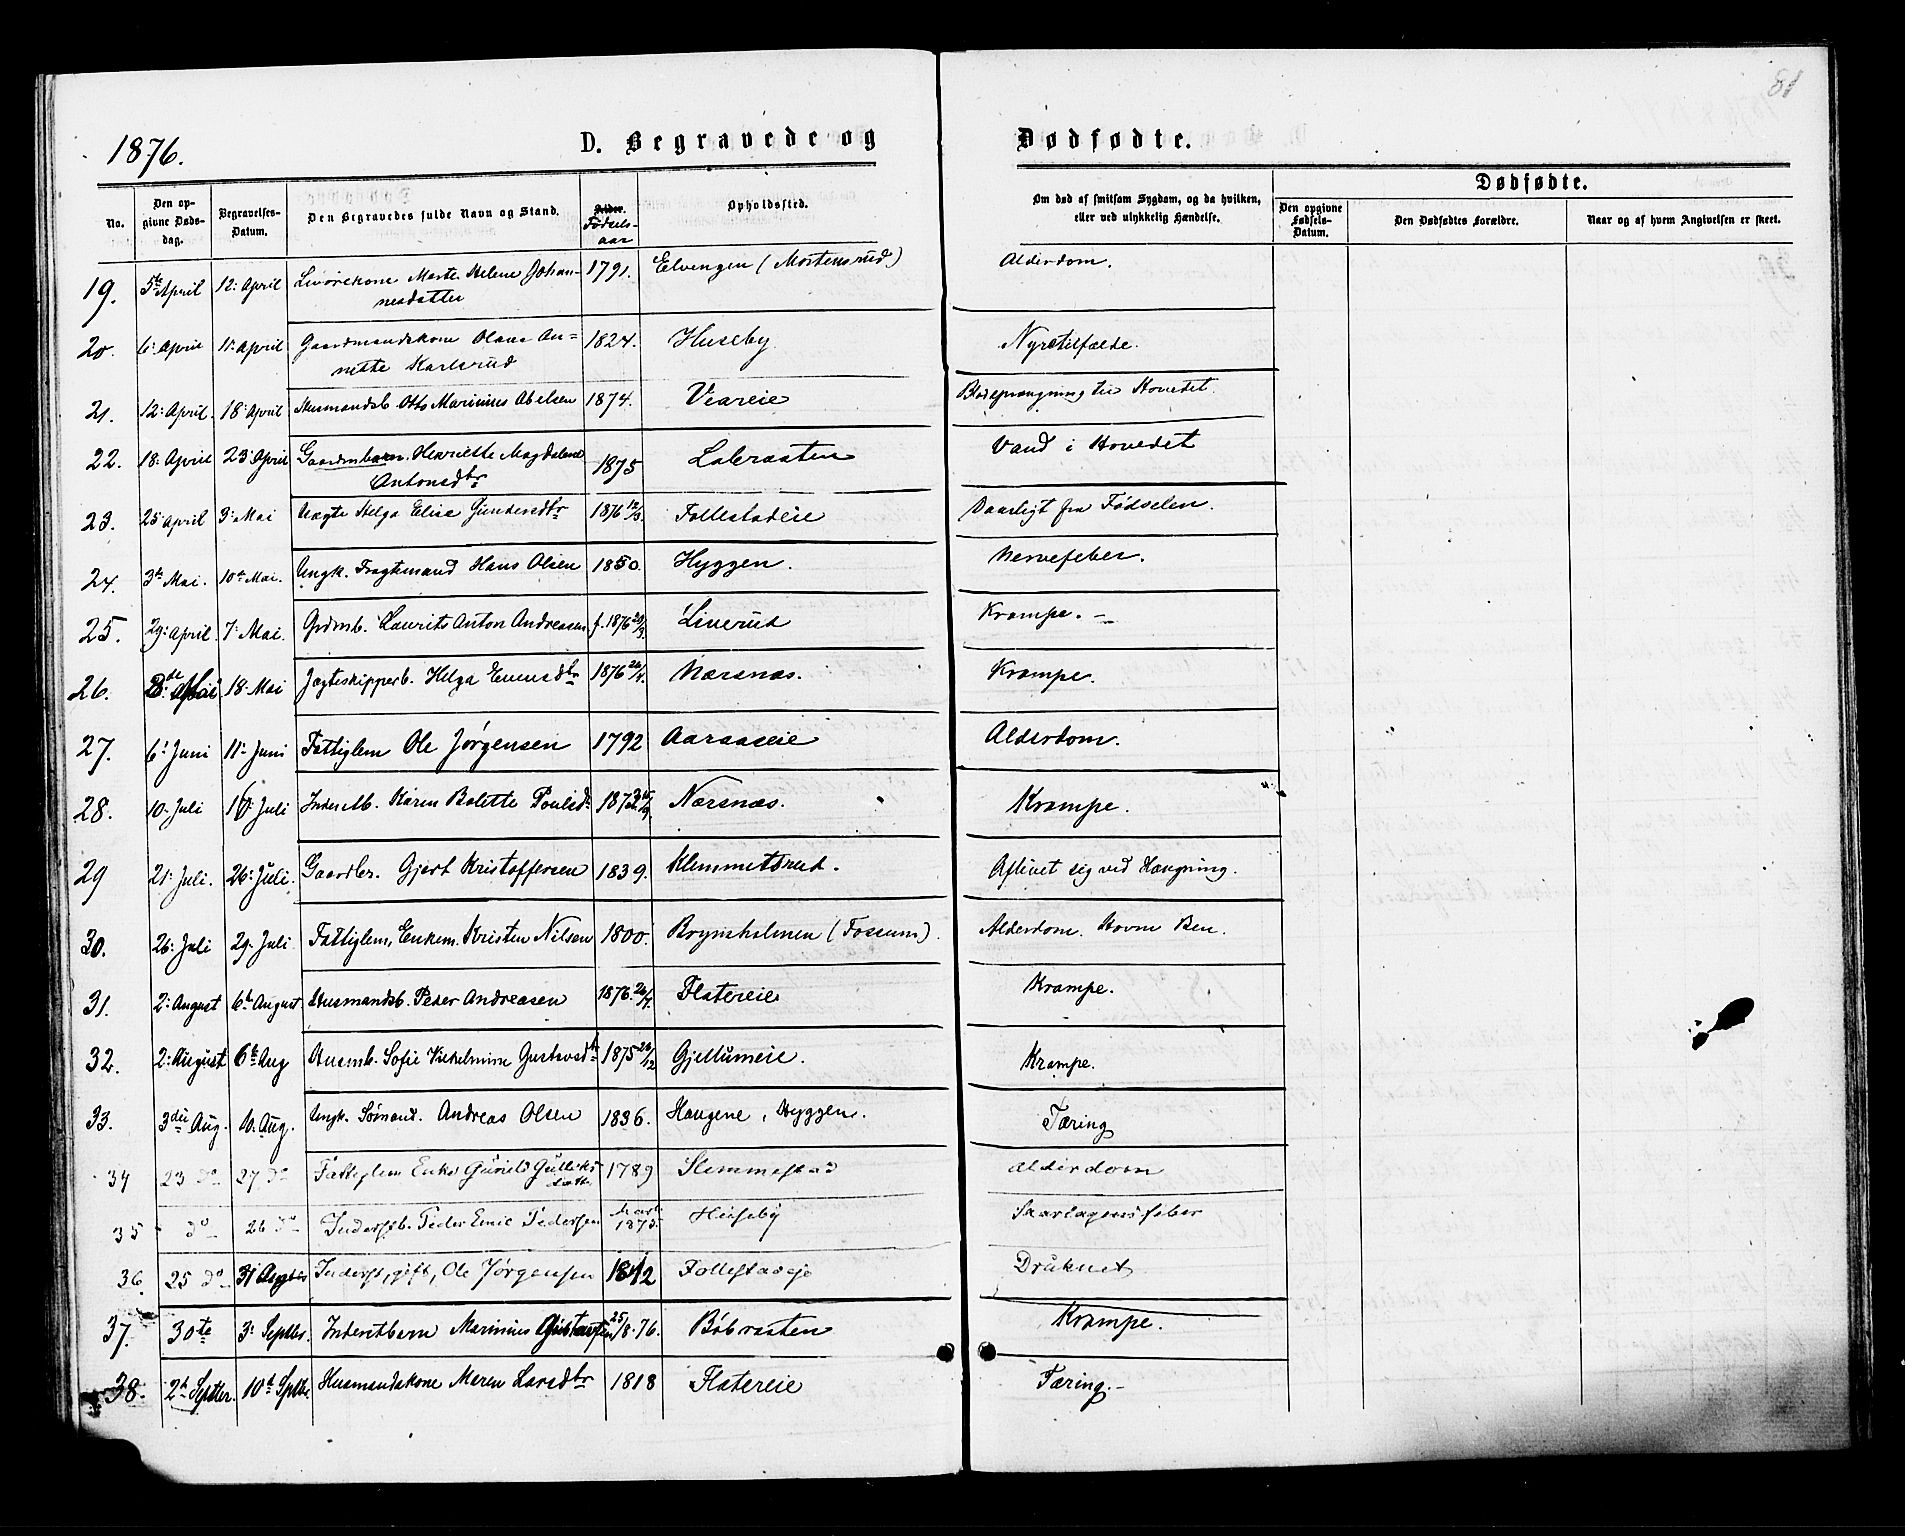 81
1876.
D. Begravede og Dødfødte.
No.
Den opgivne Døds-dag.
Begravelses-Datum.
Den Begravedes fulde Navn og Stand.
Alder.
Fødsels-aar
Opholdssted.
Om død af smitsom Sygdom, og da hvilken, eller ved ulykkelig Hændelse.
Dødfødte.
Den opgivne Fødsels-Datum.
Den Dødfødtes Forældre.
Naar og af hvem Angivelsen er skeet.
19. 5te April 12: April Livørekone Marte Helene Johan- 1791. Elvengen (Mortensrud) Alderdom.
nesdatter
20. 6: April 11: April Gaardmandskone Olava An= 1824. Huseby Nyretilfælde.
nette Karlsrud
21. 12: April 18: April Husmandsb. Otto Marinius Abelsen 1874. Veareie Blodsprængning til Hovedet.
22. 18: April 23: April Gaardmbarn. Henriette Magdalene 1875 Labraaten Vand i Hovedet
Antonsdtr
23. 25: April 3: Mai Uægte Helga Elise Gundersdtr 1876 12/3. Follestadeie Daarligt fra Fødselen.
24. 3de Mai. 10de Mai. Ungk. Fragtemand Hans Olsen 1850. Hyggen. Nervefeber.
25. 29: April. 7: Mai. Grdmb. Laurits Anton Andreasen f. 1876 29/3. Liverud Krampe. –
26. Mai 18: Mai Jægteskipperb. Helga Emensdtr 1876 26/4. Nærsnæs. Krampe.
27. 6: Juni 11: Juni Fattiglem Ole Jørgensen 1792 Aaraaseie Alderdom.
28. 10: Juli 16: Juli Inderstb. Karen Bolette Poulsd. Nærsnæs. Krampe.
29 21: Juli. 26: Juli. Gaardbr. Gjert Kristoffersen 1839. Klemmetsrud. Aflivet sig ved Hængning.
30. 26: Juli 29: Juli. Fattiglem, Enkem. Kristen Nilsen 1800. Brynsholmen (Fossum). Alderdom. Ben.
31. 2: August 6te August Husmandsb. Peder Andreasen 1876. 26/7. Flatereie Krampe.
32. 2: August 6te Aug Husmb. Sofie Vilhelmine Gustavsdtr 1875 26/12 Gjellumeie. Krampe.
33. 3die Aug. 10. Aug. Ungk. Sømand. Andreas Olsen 1836. Haugene, Hyggen. Tæring
34 23 do 27 do Fattiglem Enke Gunild Gulliks- 1789 Slemmestad Alderdom
datter
35 do 26 do Inderstb. Peder Emil Pedersen Marts 1875. Huseby Skarlagensfeber
36. 25 do 31 August Inderst, gift, Ole Jørgensen 1842 Follestadeje Druknet
37. 30te 3: Septbr. Inderstbarn Marinius Gustavsen 25/8. 76. Bøbraaten Krampe.
38. 2de Septbr. 10de Septbr. Husmandskone Maren Larsdtr 1818 Flatereie Tæring. –